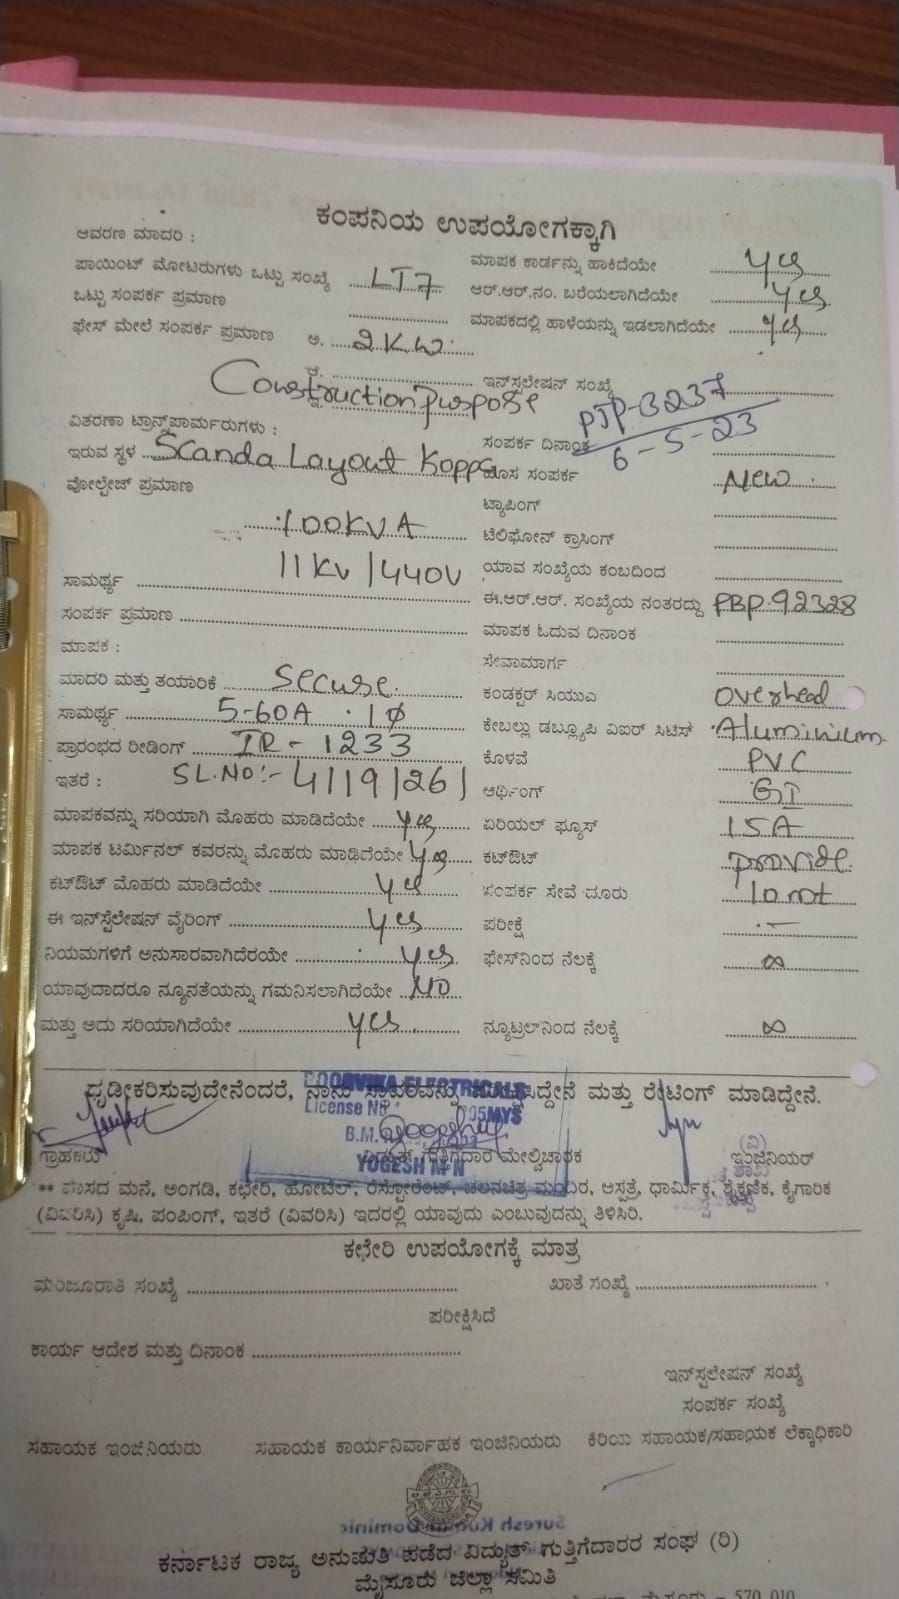 ಕಂಪನಿಯ ಉಪಯೋಗಕ್ಕಾಗಿ
ಆವರಣ ಮಾದರಿ :
ಪಾಯಿಂಟ್ ಮೋಟರುಗಳು ಒಟ್ಟು ಸಂಖ್ಯೆ LT7
ಒಟ್ಟು ಸಂಪರ್ಕ ಪ್ರಮಾಣ
ಫೇಸ್ ಮೇಲೆ ಸಂಪರ್ಕ ಪ್ರಮಾಣ ಅ. 2KW
Construction purpose
ವಿತರಣಾ ಟ್ರಾನ್ಸ್‌ಫಾರ್ಮರುಗಳು :
ಇರುವ ಸ್ಥಳ Scanda Layout Koppa
ವೋಲ್ಟೇಜ್ ಪ್ರಮಾಣ
100KVA
11KV/440V
ಸಾಮರ್ಥ್ಯ
ಸಂಪರ್ಕ ಪ್ರಮಾಣ
ಮಾಪಕ :
ಮಾದರಿ ಮತ್ತು ತಯಾರಿಕೆ Secure.
ಸಾಮರ್ಥ್ಯ 5-60A . 1Ø
ಪ್ರಾರಂಭದ ರೀಡಿಂಗ್ IR - 1233
ಇತರೆ : SL.NO:- 41191261
ಮಾಪಕವನ್ನು ಸರಿಯಾಗಿ ಮೊಹರು ಮಾಡಿದೆಯೇ yes
ಮಾಪಕ ಟರ್ಮಿನಲ್ ಕವರನ್ನು ಮೊಹರು ಮಾಡಿದೆಯೇ yes
ಕಟ್‌ಔಟ್ ಮೊಹರು ಮಾಡಿದೆಯೇ yes
ಈ ಇನ್‌ಸ್ಟಲೇಷನ್ ವೈರಿಂಗ್ yes
ನಿಯಮಗಳಿಗೆ ಅನುಸಾರವಾಗಿದೆರಯೇ yes
ಯಾವುದಾದರೂ ನ್ಯೂನತೆಯನ್ನು ಗಮನಿಸಲಾಗಿದೆಯೇ NO
ಮತ್ತು ಅದು ಸರಿಯಾಗಿದೆಯೇ yes
ಮಾಪಕ ಕಾರ್ಡನ್ನು ಹಾಕಿದೆಯೇ yes
ಆರ್.ಆರ್.ನಂ. ಬರೆಯಲಾಗಿದೆಯೇ yes
ಮಾಪಕದಲ್ಲಿ ಹಾಳೆಯನ್ನು ಇಡಲಾಗಿದೆಯೇ yes
ಇನ್‌ಸ್ಟಲೇಷನ್ ಸಂಖ್ಯೆ PJP-3237
ಸಂಪರ್ಕ ದಿನಾಂಕ 6-5-23
ಹೊಸ ಸಂಪರ್ಕ New
ಟ್ಯಾಪಿಂಗ್
ಟೆಲಿಫೋನ್ ಕ್ರಾಸಿಂಗ್
ಯಾವ ಸಂಖ್ಯೆಯ ಕಂಬದಿಂದ
ಈ.ಆರ್.ಆರ್. ಸಂಖ್ಯೆಯ ನಂತರದ್ದು PBP.92328
ಮಾಪಕ ಓದುವ ದಿನಾಂಕ
ಸೇವಾಮಾರ್ಗ
ಕಂಡಕ್ಟರ್ ಸಿಯುಎ Overhead
ಕೇಬಲ್ಲು ಡಬ್ಲ್ಯೂಪಿ ವಿಐರ್ ಸಿಟಿಸ್ Aluminium
ಕೊಳವೆ PVC
ಆರ್ಥಿಂಗ್ GI
ಏರಿಯಲ್ ಫ್ಯೂಸ್ 15A
ಕಟ್‌ಔಟ್ provide
ಸಂಪರ್ಕ ಸೇವೆ ದೂರು 10 mt
ಪರೀಕ್ಷೆ -
ಫೇಸ್‌ನಿಂದ ನೆಲಕ್ಕೆ ∞
ನ್ಯೂಟ್ರಲ್‌ನಿಂದ ನೆಲಕ್ಕೆ ∞
ಧೃಡೀಕರಿಸುವುದೇನೆಂದರೆ, ನಾನು ಮತ್ತು ರೇಟಿಂಗ್ ಮಾಡಿದ್ದೇನೆ.
POORVIKA ELECTRICALS
License No
B.M.
YOGESH M N
ಗ್ರಾಹಕರು ವಿದ್ಯುತ್ ಗುತ್ತಿಗೆದಾರ ಮೇಲ್ವಿಚಾರಕ ಇಂಜಿನಿಯರ್
** ವಾಸದ ಮನೆ, ಅಂಗಡಿ, ಕಛೇರಿ, ಹೋಟೆಲ್, ರೆಸ್ಟೋರೆಂಟ್, ಚಲನಚಿತ್ರ ಮಂದಿರ, ಆಸ್ಪತ್ರೆ, ಧಾರ್ಮಿಕ, ಶೈಕ್ಷಣಿಕ, ಕೈಗಾರಿಕ
(ವಿವರಿಸಿ) ಕೃಷಿ, ಪಂಪಿಂಗ್, ಇತರೆ (ವಿವರಿಸಿ) ಇದರಲ್ಲಿ ಯಾವುದು ಎಂಬುವುದನ್ನು ತಿಳಿಸಿರಿ.
ಕಛೇರಿ ಉಪಯೋಗಕ್ಕೆ ಮಾತ್ರ
ಮಂಜೂರಾತಿ ಸಂಖ್ಯೆ ಖಾತೆ ಸಂಖ್ಯೆ
ಪರೀಕ್ಷಿಸಿದೆ
ಕಾರ್ಯ ಆದೇಶ ಮತ್ತು ದಿನಾಂಕ
ಇನ್‌ಸ್ಟಲೇಷನ್ ಸಂಖ್ಯೆ
ಸಂಪರ್ಕ ಸಂಖ್ಯೆ
ಸಹಾಯಕ ಇಂಜಿನಿಯರು ಸಹಾಯಕ ಕಾರ್ಯನಿರ್ವಾಹಕ ಇಂಜಿನಿಯರು ಕಿರಿಯ ಸಹಾಯಕ/ಸಹಾಯಕ ಲೆಕ್ಕಾಧಿಕಾರಿ
ಕರ್ನಾಟಕ ರಾಜ್ಯ ಅನುಮತಿ ಪಡೆದ ವಿದ್ಯುತ್ ಗುತ್ತಿಗೆದಾರರ ಸಂಘ (ರಿ)
ಮೈಸೂರು ಜಿಲ್ಲಾ ಸಮಿತಿ
ಮೈಸೂರು - 570 010